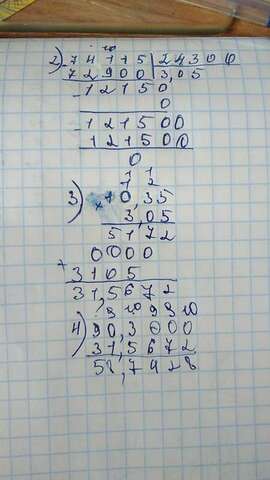 2) 74115 | 24300
72900 | 3,05
- 12150
0
- 121500
121500
0
1 1
1 2
3) × 10,35
3,05
5172
+ 0000
3105
31,5672
9 10 9 9 10
4) 90,3000
31,5672
58,7928